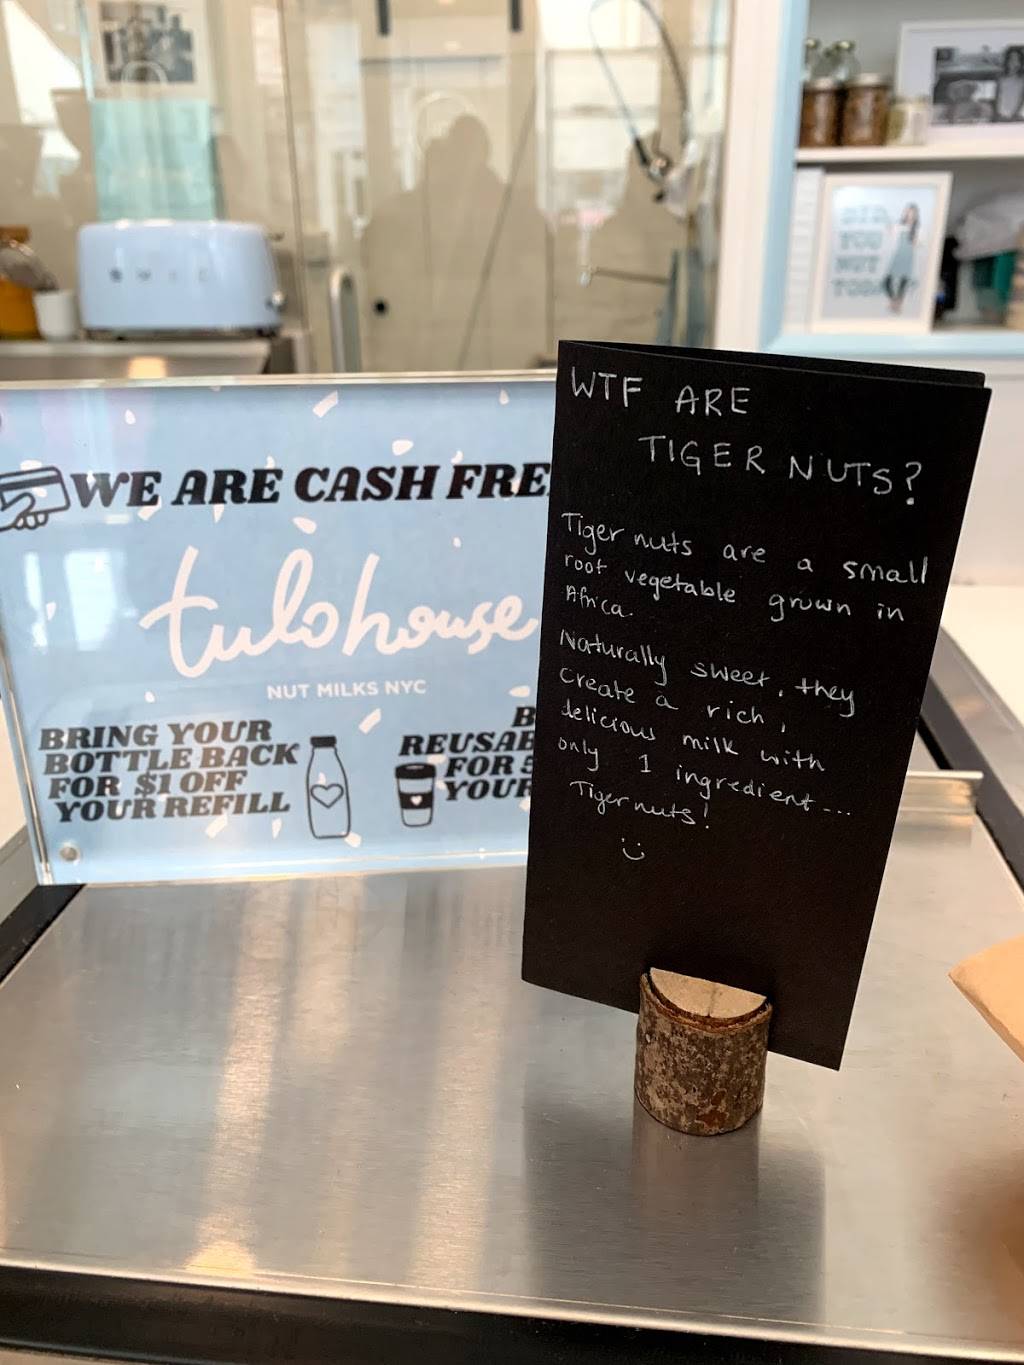 WE ARE CASH FRE
tulo house
NUT MILKS NYC
BRING YOUR
BOTTLE BACK
FOR $1 OFF
YOUR REFILL
B
REUSAB
FOR 5
YOUR
WTF ARE
TIGER NUTS?
Tiger nuts are a small
root vegetable grown in
Africa.
Naturally sweet, they
create a rich,
delicious milk with
only 1 ingredient...
Tiger nuts!
SMEG
DID
YOU
NUT
TODAY?